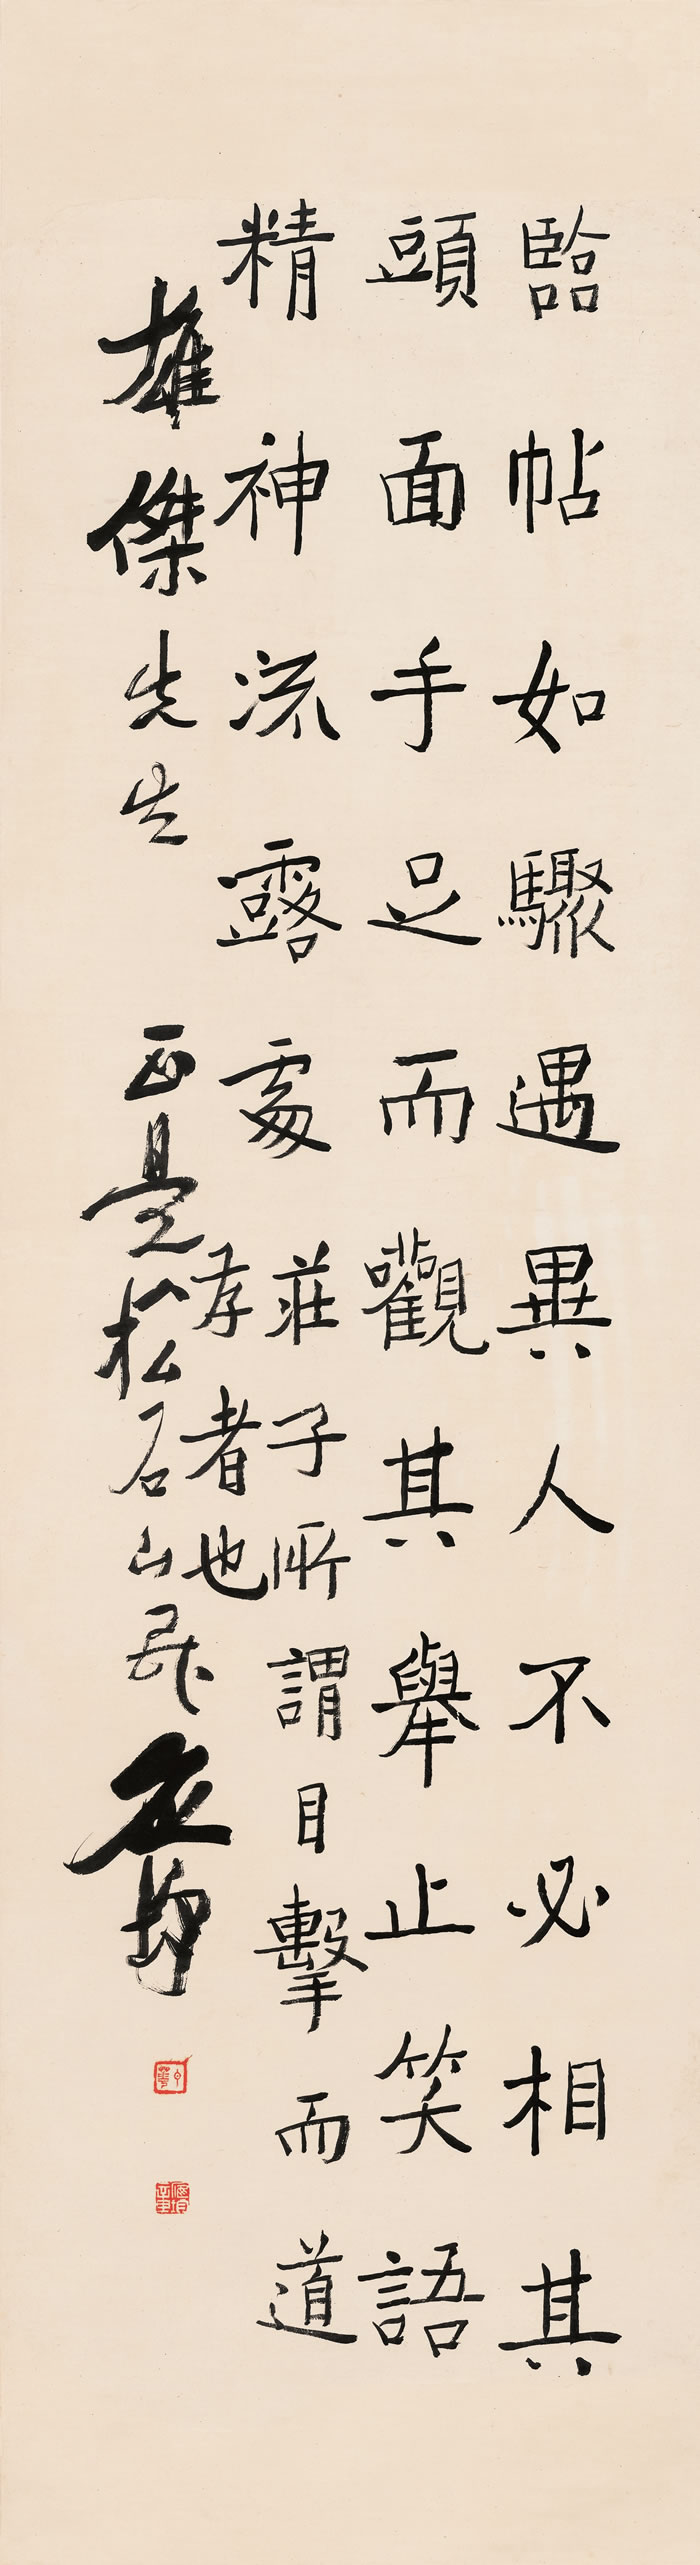 臨帖如驟遇異人不必相其
頭面手足而觀其舉止笑語
精神流露處莊子所謂目擊而道
存者也
雄傑先生 正是松石山民